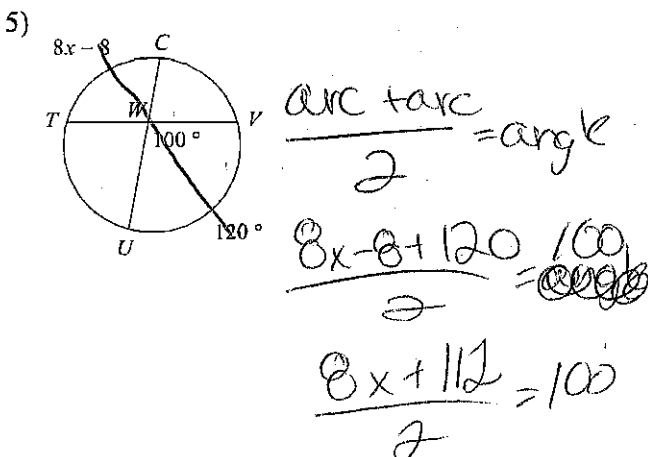 5)
8x – 8
C
T
W
V
100 °
U
120 °
arc + arc
2
= angle
8x-8+120
2
= 100
8x+112
2
= 100